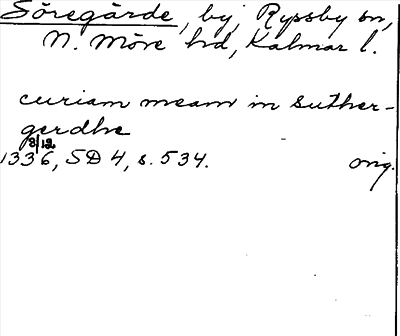 Söregärde, by, Ryssby sn,
N. Möre hd, Kalmar l.
curiam meam in suther-
gerdhe
8/12
1336, SD 4, s. 534. orig.